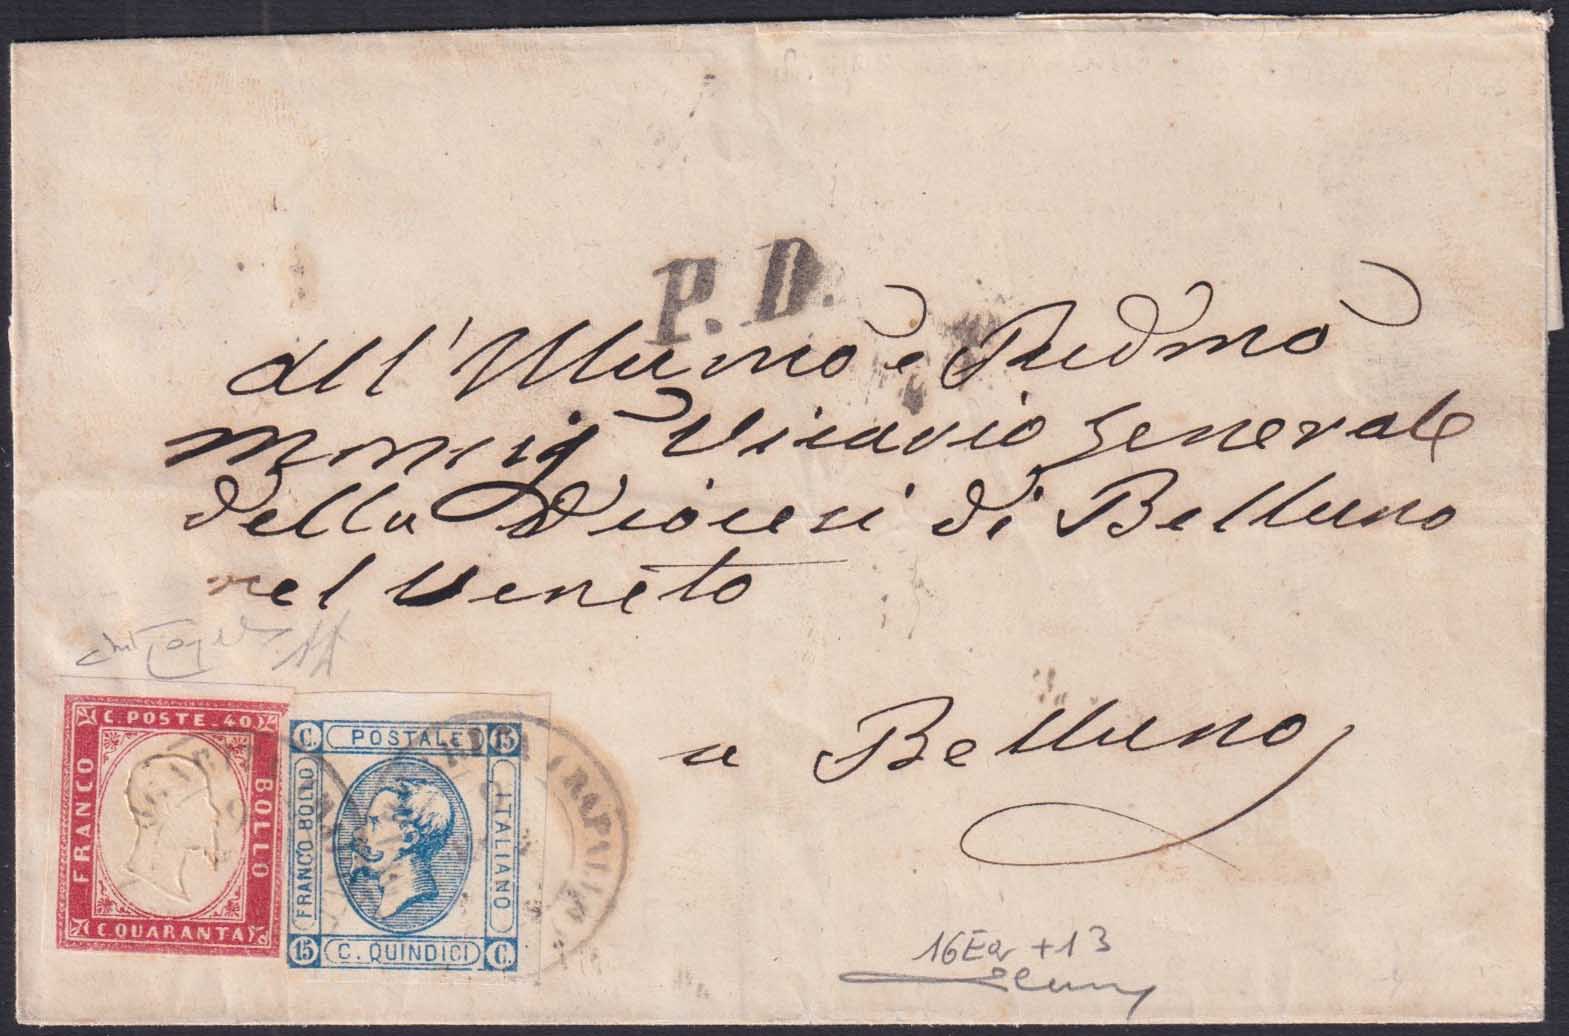 P. D.
all' Illumo e Revdmo
Monsig Vicario Generale
della Diocesi di Belluno
nel Veneto
a Belluno
C. POSTE. 40
FRANCO
BOLLO
C. QUARANTA
C POSTALE 15
FRANCO BOLLO
ITALIANO
15 C. QUINDICI C.
16Ea + 13